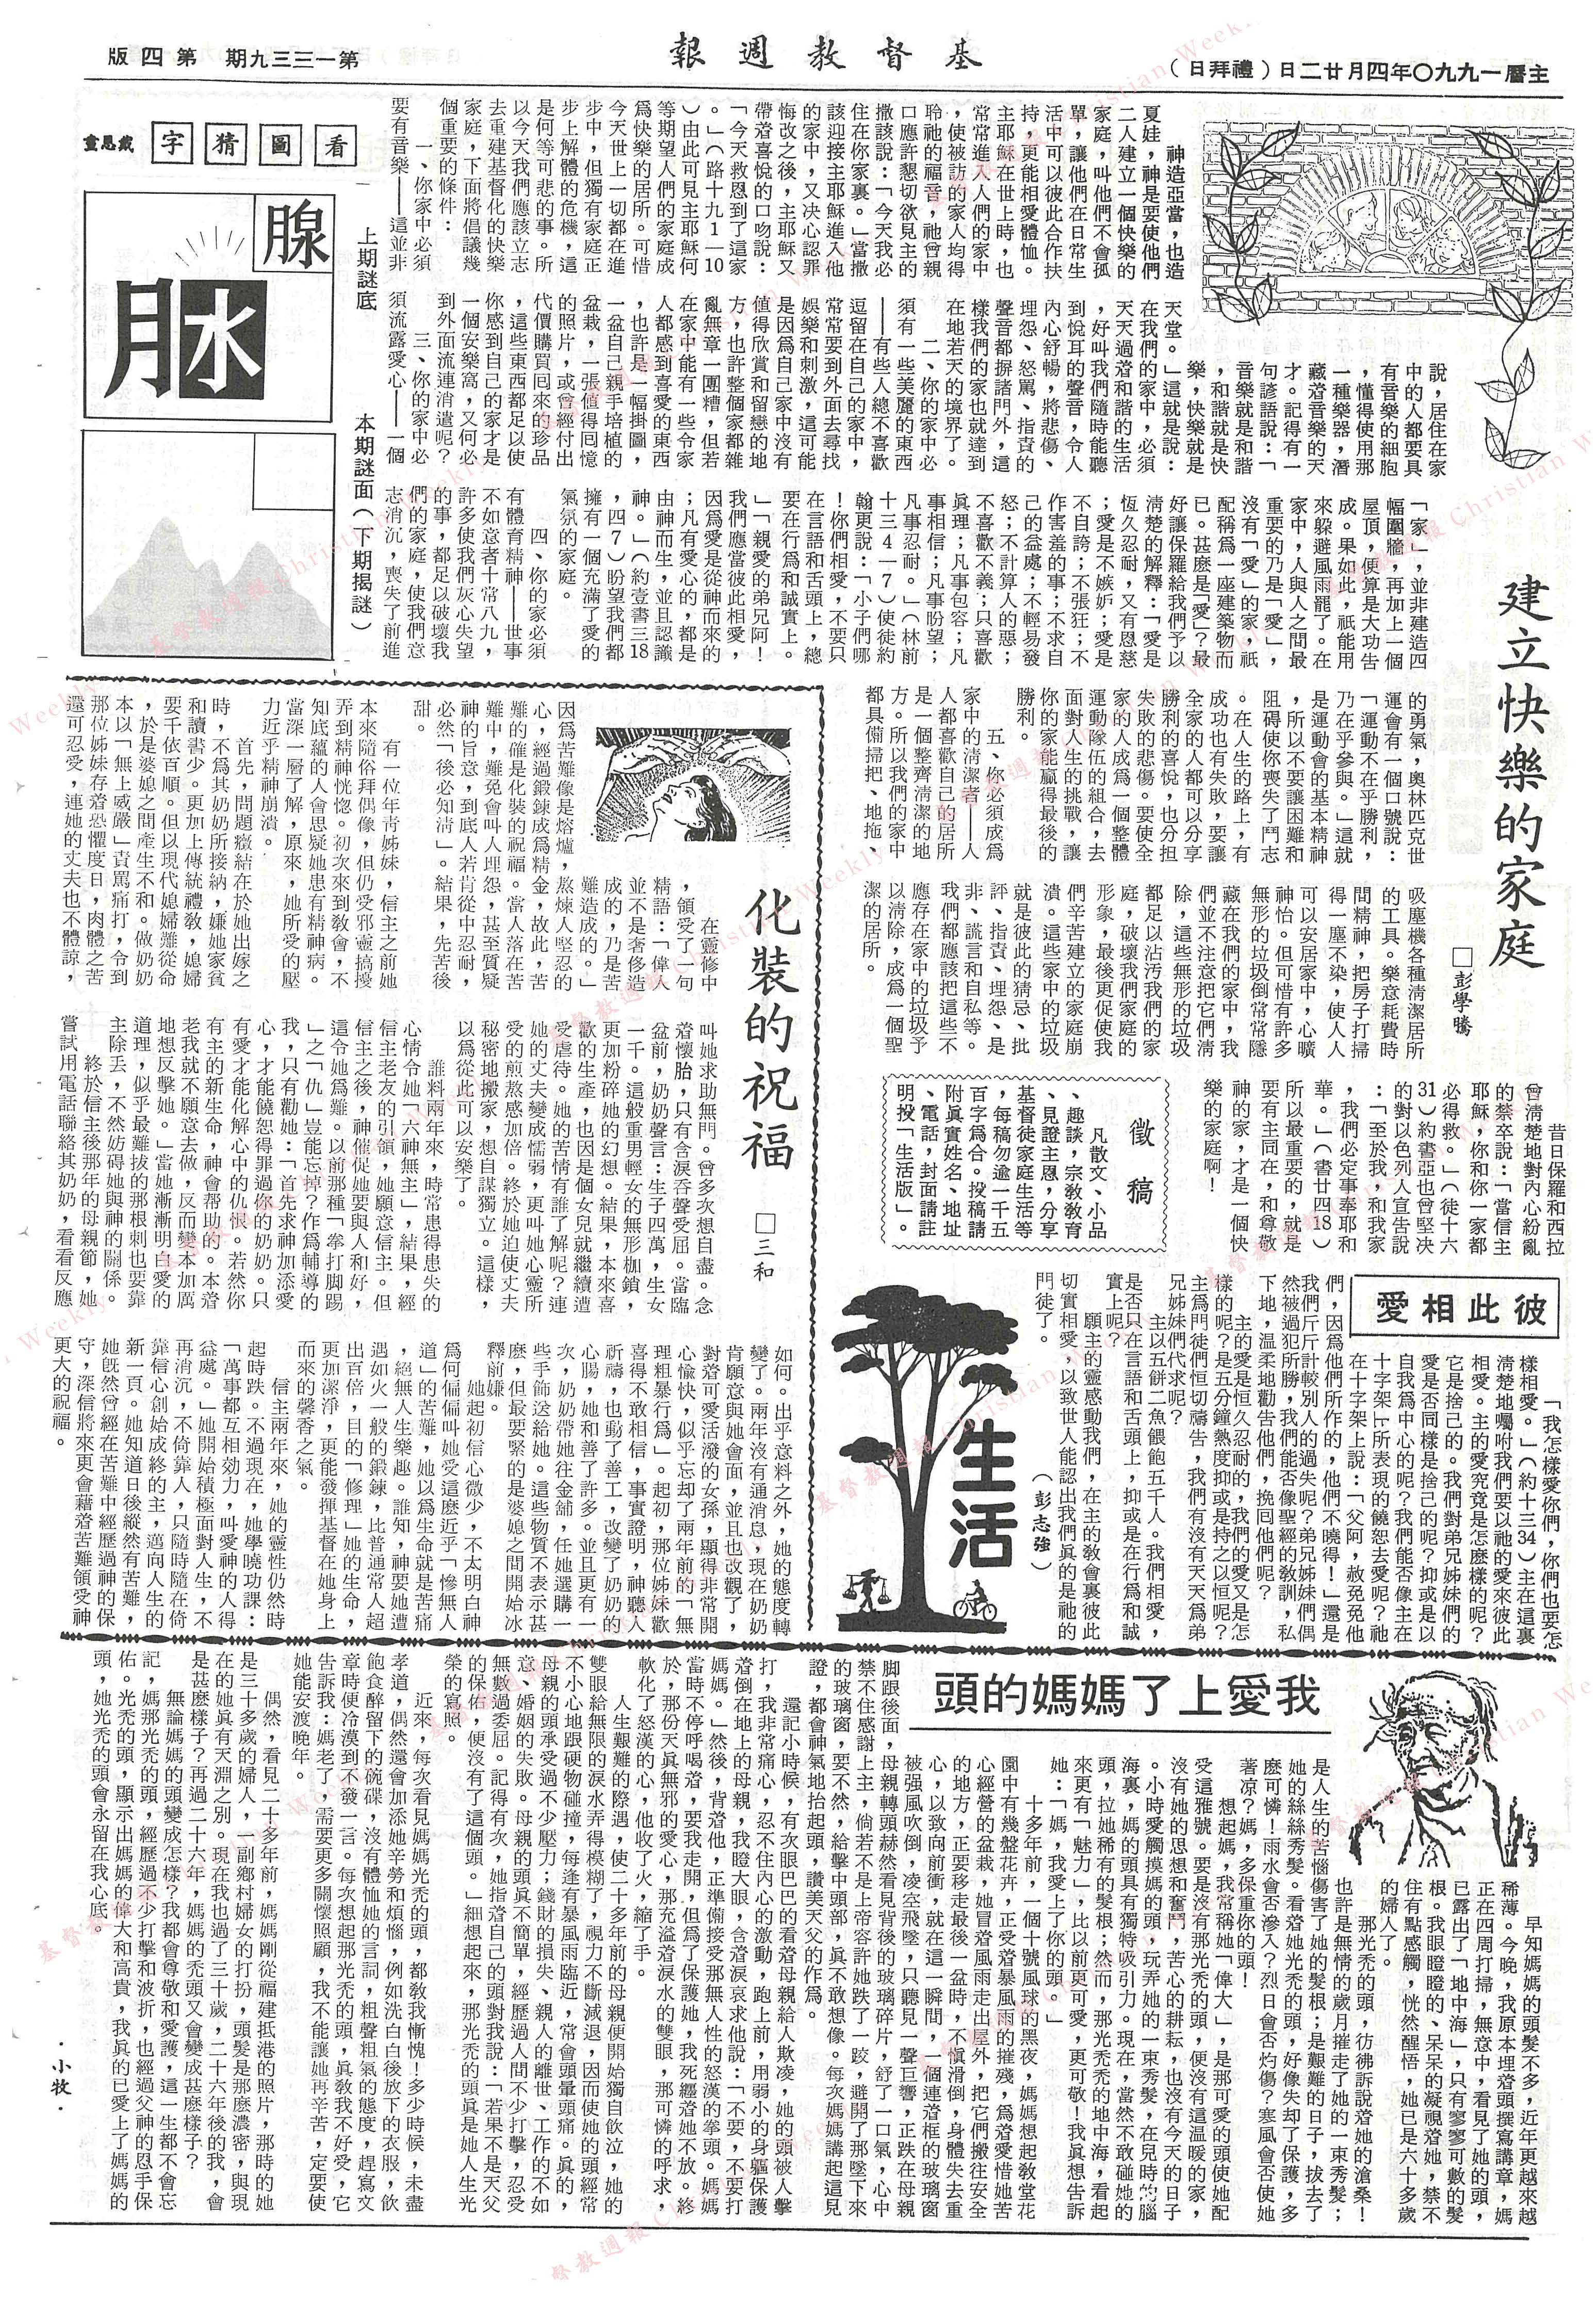 主曆一九九〇年四月廿二日（禮拜日）
基督教週報
第一三三九期　第四版
建立快樂的家庭
□彭學騰
神造亞當，也造
夏娃，神是要使他們
二人建立一個快樂的
家庭，叫他們不會孤
單，讓他們在日常生
活中可以彼此合作扶
持，更能相愛體恤。
主耶穌在世上時，也
常常進入人們的家中
，使被訪的家人均得
聆祂的福音，祂曾親
口應許懇切欲見主的
撒該說：「今天我必
住在你家裏。」當撒
該迎接主耶穌進入他
的家中，又決心認罪
悔改之後，主耶穌又
帶着喜悅的口吻說：
「今天救恩到了這家
。」（路十九1—10
）由此可見主耶穌何
等期望人們的家庭成
爲快樂的居所。可惜
今天世上一切都在進
步中，但獨有家庭正
步上解體的危機，這
是何等可悲的事。所
以今天我們應該立志
去重建基督化的快樂
家庭，下面將倡議幾
個重要的條件：
一、你家中必須
要有音樂——這並非
說，居住在家
中的人都要具
有音樂的細胞
，懂得使用那
一種樂器，潛
藏着音樂的天
才。記得有一
句諺語說：「
音樂就是和諧
，和諧就是快
樂，快樂就是
天堂。」這就是說：
在我們的家中，必須
天天過着和諧的生活
，好叫我們隨時能聽
到悅耳的聲音，令人
內心舒暢，將悲傷、
埋怨、怒罵、指責的
聲音都摒諸門外，這
樣我們的家也就達到
在地若天的境界了。
二、你的家中必
須有一些美麗的東西
——有些人總不喜歡
逗留在自己的家中，
常常要到外面去尋找
娛樂和刺激，這可能
是因爲自己家中沒有
值得欣賞和留戀的地
方，也許整個家都雜
亂無章一團糟，但若
在家中能有一些令家
人都感到喜愛的東西
，也許是一幅掛圖，
一盆自己親手培植的
盆栽，一張值得囘憶
的照片，或會經付出
代價購買囘來的珍品
，這些東西都足以使
你感到自己的家才是
一個安樂窩，又何必
到外面流連消遣呢？
三、你的家中必
須流露愛心——一個
「家」，並非建造四
幅圍牆，再加上一個
屋頂，便算是大功告
成。果如此，祇能用
來躲避風雨罷了。在
家中，人與人之間最
重要的乃是「愛」，
沒有「愛」的家，祇
配稱爲一座建築物而
已。甚麽是「愛」？最
好讓保羅給我們予以
淸楚的解釋：「愛是
恆久忍耐，又有恩慈
；愛是不嫉妒；愛是
不自誇；不張狂；不
作害羞的事；不求自
己的益處；不輕易發
怒；不計算人的惡；
不喜歡不義；只喜歡
眞理；凡事包容；凡
事相信；凡事盼望；
凡事忍耐。」（林前
十三4—7）使徒約
翰更說：「小子們哪
！你們相愛，不要只
在言語和舌頭上，總
要在行爲和誠實上。
」「親愛的弟兄阿！
我們應當彼此相愛，
因爲愛是從神而來的
；凡有愛心的，都是
由神而生，並且認識
神。」（約壹書三18
，四7）盼望我們都
擁有一個充滿了愛的
氣氛的家庭。
四、你的家必須
有體育精神——世事
不如意者十常八九，
許多使我們灰心失望
的事，都足以破壞我
們的家庭，使我們意
志消沉，喪失了前進
的勇氣，奧林匹克世
運會有一個口號說：
「運動不在乎勝利，
乃在乎參與。」這就
是運動會的基本精神
，所以不要讓困難和
阻碍使你喪失了鬥志
。在人生的路上，有
成功也有失敗，要讓
全家的人都可以分享
勝利的喜悅，也分担
失敗的悲傷。要使全
家的人成爲一個整體
運動隊伍的組合，去
面對人生的挑戰，讓
你的家能贏得最後的
勝利。
五、你必須成爲
家中的淸潔者——人
人都喜歡自己的居所
是一個整齊淸潔的地
方。所以我們的家中
都具備掃把、地拖、
吸塵機各種淸潔居所
的工具。樂意耗費時
間精神，把房子打掃
得一塵不染，使人人
可以安居家中，心曠
神怡。但可惜有許多
無形的垃圾倒常常隱
藏在我們的家中，我
們並不注意把它們淸
除，這些無形的垃圾
都足以沾汚我們的家
庭，破壞我們家庭的
形象，最後更促使我
們辛苦建立的家庭崩
潰。這些家中的垃圾
就是彼此的猜忌、批
評、指責、埋怨、是
非、謊言和自私等。
我們都應該把這些不
應存在家中的垃圾予
以淸除，成爲一個聖
潔的居所。
昔日保羅和西拉
曾淸楚地對內心紛亂
的禁卒說：「當信主
耶穌，你和你一家都
必得救。」（徒十六
31）約書亞也曾堅決
的對以色列人宣告說
：「至於我，和我家
，我們必定事奉耶和
華。」（書廿四18）
所以最重要的，就是
要有主同在，和尊敬
神的家，才是一個快
樂的家庭啊！
徵稿
凡散文、小品
、趣談，宗敎敎育
、見證主恩，分享
基督徒家庭生活等
，每稿勿逾一千五
百字爲合。投稿請
附眞實姓名、地址
、電話，封面請註
明投「生活版」。
看圖猜字
戴恩畫
腺
上期謎底
本期謎面（下期揭謎）
化裝的祝福
□三和
在靈修中
，領受了一句
精語：「偉人
並不是奢侈造
成的，乃是苦
難造成的。」
因爲苦難像是熔爐，熬煉人堅忍的
心，經過鍛鍊成爲精金，故此，苦
難的確是化裝的祝福。當人落在苦
難中，難免會叫人埋怨，甚至質疑
神的旨意，到底人若肯從中忍耐，
必然「後必知淸」。結果，先苦後
甜。
有一位年靑姊妹，信主之前她
本來隨俗拜偶像，但仍受邪靈搞擾
弄到精神恍惚。初次來到敎會，不
知底蘊的人會思疑她患有精神病。
當深一層了解，原來，她所受的壓
力近乎精神崩潰。
首先，問題癥結在於她出嫁之
時，不爲其奶奶所接納，嫌她家貧
和讀書少。更加上傳統禮敎，媳婦
要千依百順。但以現代媳婦難從命
，於是婆媳之間產生不和。做奶奶
本以「無上威嚴」責罵痛打，令到
那位姊妹存着恐懼度日，肉體之苦
還可忍受，連她的丈夫也不體諒，
叫她求助無門。曾多次想自盡。念
着懷胎，只有含淚吞聲受屈。當臨
盆前，奶奶聲言：生子四萬，生女
一千。這般重男輕女的無形枷鎖，
更加粉碎她的幻想。結果，本來喜
歡的生產，也因是個女兒就繼續遭
受虐待。她的苦情有誰了解呢？連
她的丈夫變成懦弱，更叫她心靈所
受的煎熬感加倍。終於她迫使丈夫
秘密地搬家，想自謀獨立。這樣，
以爲從此可以安樂了。
誰料兩年來，時常患得患失的
心情令她「六神無主」，結果，經
信主老友的引領，她願意信主。但
信主之後，神催促她要與人和好，
這令她爲難。以前那種「拳打脚踢
」之「仇」豈能忘掉？作爲輔導的
我，只有勸她：「首先求神加添愛
心，才能饒恕得罪過你的奶奶。只
有愛才能化解心中的仇恨。若然你
有主的新生命，神會幫助的。本着
老我就不願意去做，反而變本加厲
地想反擊她。」當她漸漸明白愛的
道理，似乎最難拔的那根刺也要靠
主除丟，不然妨碍她與神的關係。
終於信主後那年的母親節，她
嘗試用電話聯絡其奶奶，看看反應
如何。出乎意料之外，她的態度轉
變了。兩年沒有通消息，現在奶奶
肯願意與她會面，並且也改觀了，
對着可愛活潑的女孫，顯得非常開
心愉快，似乎忘却了兩年前的「無
理粗暴行爲」。起初，那位姊妹歡
喜得不敢相信，事實證明，神聽人
祈禱，也動了善工，改變了奶奶的
心腸，她和善了許多。並且更有一
次，奶奶帶她往金舖，任她選購一
些手飾送給她。這些物質不表示甚
麽，但最要緊的是婆媳之間開始冰
釋前嫌。
她起初信心微少，不太明白神
爲何偏偏叫她受這麽近乎「慘無人
道」的苦難，她以爲生命就是苦痛
，絕無人生樂趣。誰知，神要她遭
遇如火一般的鍛鍊，比普通常人超
出百倍，目的「修理」她的生命，
更加潔淨，更能發揮基督在她身上
而來的馨香之氣。
信主兩年來，她的靈性仍然時
起時跌。不過現在，她學曉功課：
「萬事都互相効力，叫愛神的人得
益處。」她開始積極面對人生，不
再消沉，不倚靠人，只隨時隨在倚
靠信心創始成終的主，邁向人生的
新一頁。她知道日後縱然有苦難，
她旣然曾經在苦難中經歷過神的保
守，深信將來更會藉着苦難領受神
更大的祝福。
彼此相愛
「我怎樣愛你們，你們也要怎
樣相愛。」（約十三34）主在這裏
淸楚地囑咐我們要以祂的愛來彼此
相愛。主的愛究竟是怎麽樣的呢？
它是捨己的。我們對弟兄姊妹們的
愛是否同樣是捨己的呢？抑或是以
自我爲中心的呢？我們能否像主在
十字架上所表現的饒恕去愛呢？祂
在十字架上說：「父阿，赦免他
們，因爲他們所作的，他們不曉得！」還是
我們斤斤計較別人的過失呢？弟兄姊妹們偶
然被過犯所勝，我們能否像聖經的敎訓，私
下地，溫柔地勸告他們，挽囘他們呢？
主的愛是恒久忍耐的，我們的愛又是怎
樣的呢？是五分鐘熱度抑或是持之以恒呢？
主爲門徒們恒切禱告，我們有沒有天天爲弟
兄姊妹們代求呢？
主以五餅二魚餵飽五千人。我們相愛，
是否只在言語和舌頭上，抑或是在行爲和誠
實上呢？
願主的靈感動我們，在主的敎會裏彼此
切實相愛，以致世人能認出我們眞的是祂的
門徒了。
（彭志強）
生活
我愛上了媽媽的頭
早知媽媽的頭髮不多，近年更越來越
稀薄。今晚，我原本埋着頭撰寫講章，媽
正在四周打掃，無意中，看見了她的頭，
已露出了「地中海」，只有寥寥可數的髮
根。我眼瞪瞪的、呆呆的凝視着她，禁不
住有點感觸，恍然醒悟，她已是六十多歲
的婦人了。
那光禿的頭，彷彿訴說着她的滄桑！
也許是無情的歲月摧走了她的一束秀髮；
是人生的苦惱傷害了她的髮根；是艱難的日子，拔去了
她的絲絲秀髮。看着她光禿的頭，好像失却了保護，多
麽可憐！雨水會否滲入？烈日會否灼傷？寒風會否使她
著凉？媽，多保重你的頭！
想起媽媽，我常稱她「偉大」，是那可愛的頭使她配
受這雅號。要是沒有那光禿的頭，便沒有這溫暖的家，
沒有她的思想和奮鬥，苦心的耕耘，也沒有今天的日子
。小時愛觸摸媽的頭，玩弄她的一束秀髮，在兒時的腦
海裏，媽的頭具有獨特吸引力。現在，當然不敢碰她的
頭，拉她稀有的髮根；然而，那光禿禿的地中海，看起
來更有「魅力」，比以前更可愛，更可敬！我眞想告訴
她：「媽，我愛上了你的頭。」
十多年前，一個十號風球的黑夜，媽媽想起敎堂花
園中有幾盤花卉，正受着暴風雨的摧殘，爲着愛惜她苦
心經營的盆栽，她冒着風雨走出屋外，把它們搬往安全
的地方，正要移走最後一盆時，不愼滑倒，身體失去重
心，以致向前衝，就在這一瞬間，一個連着框的玻璃窗
被强風吹倒，凌空飛墜，只聽見一聲巨響，正跌在母親
脚跟後面，母親轉頭赫然看見背後的玻璃碎片，舒了一口氣，心中
禁不住感謝上主，倘若不是上帝容許她跌了一跤，避開了那墜下來
的玻璃窗，要不然，給擊中頭部，眞不敢想像。每次媽媽講起這見
證，都會神氣地抬起頭，讚美天父的作爲。
還記小時候，有次眼巴巴的看着母親給人欺凌，她的頭被人擊
打，我非常痛心，忍不住內心的激動，跑上前，用弱小的身軀保護
着倒在地上的母親，我瞪大眼，含着淚哀求他說：「不要，不要打
媽媽。」然後，背着他，正準備接受那無人性的怒漢的拳頭。媽媽
當時不停呼喝着，要我走開，但爲了保護她，我死纏着她不放。終
於，那份天眞無邪的愛心，那充溢着淚水的雙眼，那可憐的呼求，
軟化了怒漢的心，他收了火，縮了手。
人生艱難的際遇，使二十多年前的母親便開始獨自飲泣，她的
雙眼給無限的淚水弄得模糊了，視力不斷減退，因而使她的頭經常
不小心地跟硬物碰撞，每逢有暴風雨臨近，常會頭暈頭痛。眞的，
母親的頭承受過不少壓力；錢財的損失、親人的離世、工作的不如
意、婚姻的失敗。母親的頭眞不簡單，經歷過人間不少打擊，忍受
無數過委屈。記得有次，她指着自己的頭對我說：「若果不是天父
的保佑，便沒有了這個頭。」細想起來，那光禿的頭眞是她人生光
榮的寫照。
近來，每次看見媽媽光禿的頭，都敎我慚愧！多少時候，未盡
孝道，偶然還會加添她辛勞和煩惱，例如洗白白後放下的衣服，飲
飽食醉留下的碗碟，沒有體恤她的言詞，粗聲粗氣的態度，趕寫文
章時便冷漠到不發一言。每次想起那光禿的頭，眞敎我不好受，它
告訴我：媽老了，需要更多關懷照顧，我不能讓她再辛苦，定要使
她能安渡晚年。
偶然，看見二十多年前，媽媽剛從福建抵港的照片，那時的她
是三十多歲的婦人，一副鄉村婦女的打扮，頭髮是那麽濃密，與現
在的她眞有天淵之別。現在我也過了三十歲，二十六年後的我，會
是甚麽樣子？再過二十六年，媽媽的禿頭又會變成甚麽樣子？
無論媽媽的頭變成怎樣？我都會尊敬和愛護，這一生都不會忘
記，媽那光禿的頭，經歷過不少打擊和波折，也經過父神的恩手保
佑。光禿的頭，顯示出媽媽的偉大和高貴，我眞的已愛上了媽媽的
頭，她光禿的頭會永留在我心底。
．小牧．
基督教週報 Christian Weekly